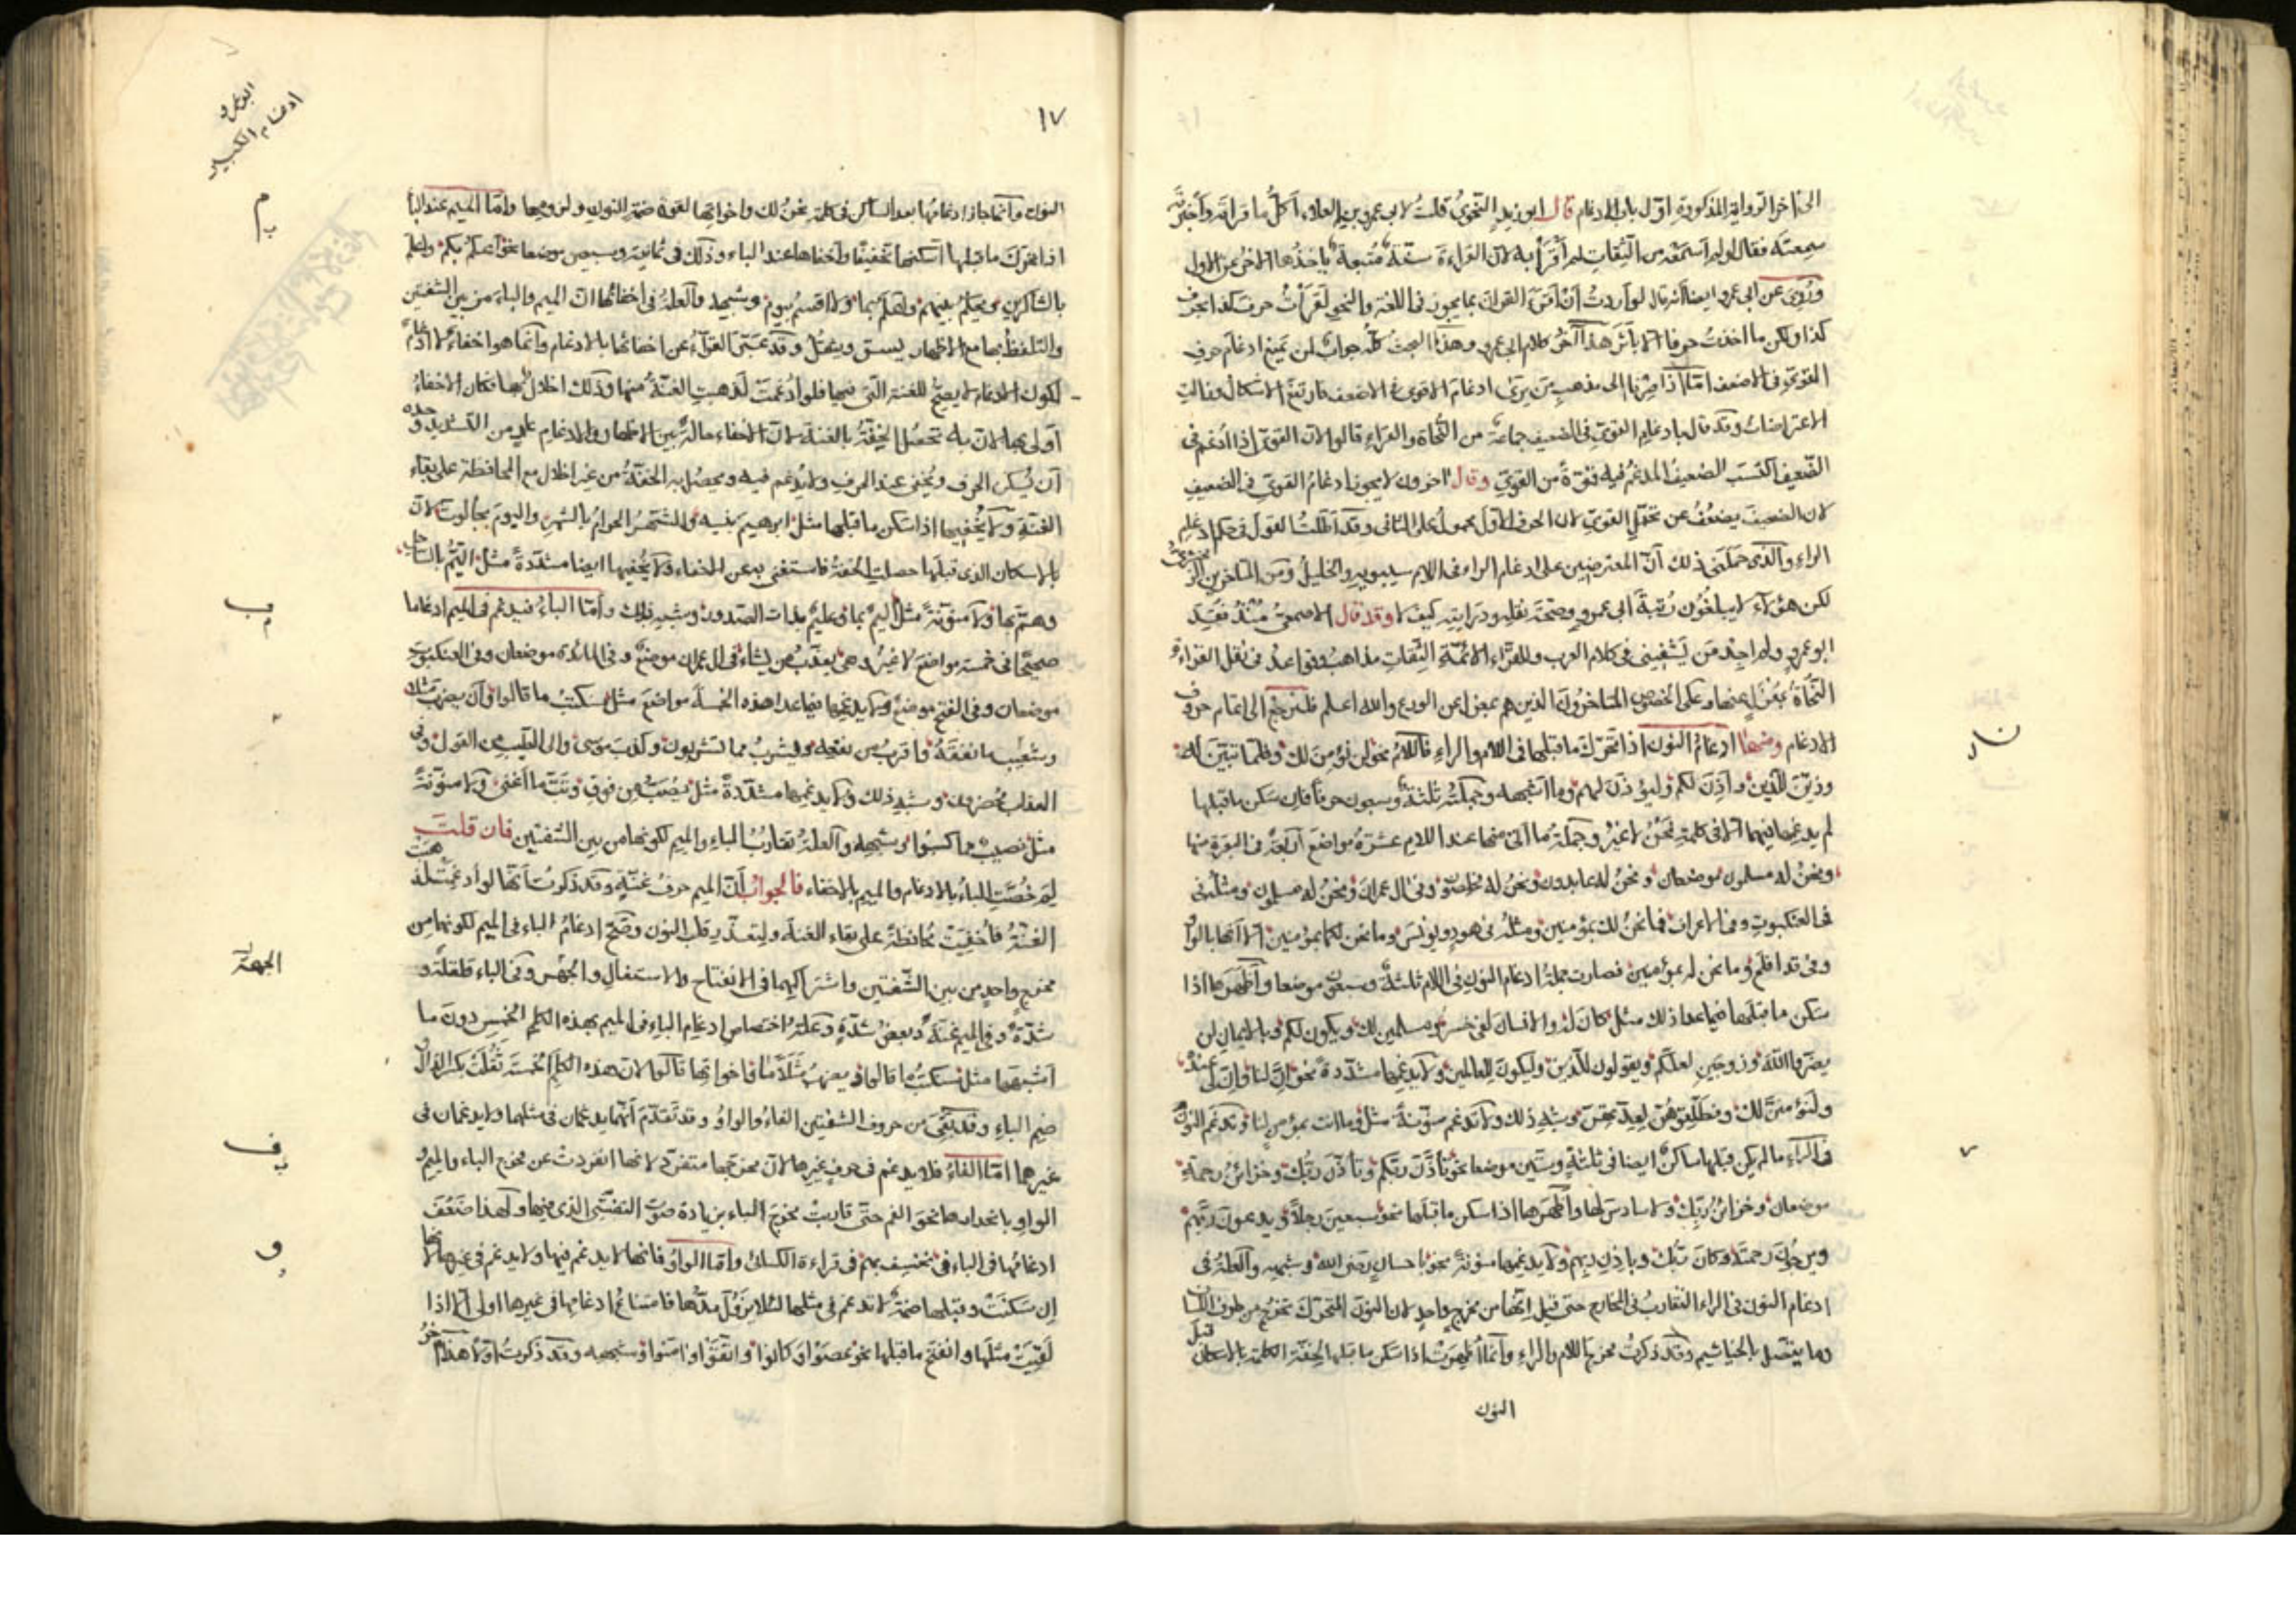 الى اخر الرواية المذكورة اول باب الادغام قال ابو زيد النحوي قلت لابي عمرو بن العلاء اكل ما قرأته واخبرت به
سمعته فقال لو لم اسمعه من الثقات لم اقرأ به لان القراءة سنة متبعة ياخذها الاخر عن الاول
وروى عن ابى عمرو ايضا انه قال لو اردت ان اقرأ القران بما يجوز فى اللغة والنحو لقرأت حرف كذا بحرف
كذا ولكن ما اخذت حرفا الا بأثر هذا آخر كلام ابى عمرو وهذا البحث كله جواب لمن يمنع ادغام حرف
القوى فى الاضعف امّا اذا صرنا الى مذهب من يرى ادغام الاقوى فى الاضعف فارتفع الاشكال وزالت
الاعتراضات وقد قال بادغام القوى فى الضعيف جماعة من النحاة والقراء قالوا لان القوى اذا ادغم فى
الضعيف اكتسب الضعيف المدغم فيه قوة من القوى وقال اخرون لا يجوز ادغام القوى فى الضعيف
لان الضعيف يضعف عن تحمل القوى لان الحرف الاول محمول على الثانى وقد اطلت القول فى حكم ادغام
الراء والذى حملنى ذلك ان المعترضين على ادغام الراء فى اللام سيبويه والخليل ومن المتاخرين الزمخشرى
لكن هؤلاء لا يبلغون رتبة ابى عمرو وصحة نقله ودرايته كيف لا وقد قال الاصمعى منذ فقد
ابو عمرو لم اجد من يشفينى فى كلام العرب وللقراء الائمة الثقات مذاهب وقواعد فى نقل القراءة و
النحاة بمعزل عنها وعلى الخصوص المتاخرون الذين هم بمعزل عن الورع والله اعلم فلنرجع الى اتمام حروف
الادغام ومنها ادغام النون اذا تحرك ما قبلها فى اللام والراء فاللام نحو لن نؤمن لك وفلما تبين له
وزين للذين وآذن لكم وليؤذن لهم وما اشبهه وجملته ثلثة وسبعون حرفا فان سكن ما قبلها
لم يدغمها فيهما الا فى كلمة نحن لا غير وجملة ما اتى منها عند اللام عشرة مواضع اربعة فى البقرة منها
ونحن له مسلمون موضعان ونحن له عابدون ونحن له مخلصون وفى ال عمران ونحن له مسلمون ومثله
فى العنكبوت وفى الاعراف فما نحن لك بمؤمنين ومثله فى هود ويونس وما نحن لكما بمؤمنين الا انها بالواو
وفى قد افلح وما نحن له بمؤمنين فصارت جملة ادغام النون فى اللام ثلثة وسبعون موضعا واظهرها اذا
سكن ما قبلها فيما عدا ذلك مثل كان له والانسان لفى خسر ومسلمين لك ويكون لكم وبالايمان لمن
يضروا الله وزوجين لعلكم ويقولون للذين وليكون للعالمين ولا يدغمها مشددة نحو ان لنا وان لى عنده
ولنؤمنن لك وفطلقوهن لعدتهن وشبه ذلك ولا تدغم منونة مثل وما انت بمؤمن لنا وتدغم النون
فى الراء ما لم يكن قبلها ساكن ايضا فى ثلثة وستين موضعا نحو تأذن ربكم وتأذن ربك وخزائن رحمة
موضعان وخزائن ربك ولا سادس لها واظهرها اذا سكن ما قبلها نحو سبعين رجلا ويدعون ربهم
ويرجون رحمته وكان ربك وباذن ربهم ولا يدغمها منونة نحو باحسان رضى الله وشبهه والعلة فى
ادغام النون فى الراء التقارب فى المخارج حتى قيل انها من مخرج واحد لان النون المتحرك تخرج من طرف اللسان
وما يتصل بالخياشيم وقد ذكرت مخرج اللام والراء وانما اظهرت اذا سكن ما قبلها لخفة الكلمة بالاسكان قبل
النون
ن ر
١٧
ابو عمرو
ادغام الكبير
النون وانما جاز ادغامها بعد الساكن فى كلمة نحن لك واخواتها لقوة ضمة النون ولزومها وامّا الميم عند الباء
اذا تحرك ما قبلها اسكنها تخفيفا واخفاها عند الباء وذلك فى ثمانية وسبعين موضعا نحو اعلم بكم واعلم
بالشاكرين ويحكم بينهم ولهم بما ولا اقسم بيوم وشبهه والعلة فى اخفائها ان الميم والباء من بين الشفتين
والتلفظ بها مع الاظهار يسق ويثقل وقد عبر القراء عن اخفائها بالادغام وانما هو اخفاء لا ادغام
لكون الادغام لا يصح للغنة التى فيها فلو ادغمت لذهبت الغنة منها وذلك اخلال بها فكان الاخفاء
اولى بها لان به تحصل الخفة بالغنة لان الاخفاء حالة بين الاظهار والادغام عار من التشديد وحده
ان يسكن الحرف ويخفى عند الحرف ولا يدغم فيه ويحصل به الخفة من غير اخلال مع المحافظة على بقاء
الغنة ولا يخفيها اذا سكن ما قبلها مثل ابرهيم بنيه والشهر الحرام بالشهر واليوم بجالوت لان
بالاسكان الذى قبلها حصلت الخفة فاستغنى به عن الاخفاء ولا يخفيها ايضا مشددة مثل اليم بالساحل
وهم بها ولا منونة مثل اليم بما وعليم بذات الصدور وشبه ذلك وامّا الباء فيدغم فى الميم ادغاما
صحيحا فى خمسة مواضع لا غير وهى يعذب من يشاء فى ال عمران موضع وفى المائدة موضعان وفى العنكبوت
موضعان وفى الفتح موضع ولا يدغمها فيما عدا هذه الخمسة مواضع مثل سنكتب ما قالوا وان يضرب مثلا
وشعيب ما نفقه واقرب من نفعه ويشرب مما تشربون وكذب موسى والى الطيب من القول وفى
العذاب محضرون وشبه ذلك ولا يدغمها مشددة مثل يصب من فوق وتب ما اغنى ولا منونة
مثل نصيب مما كسبوا وشبهه والعلة تقارب الباء والميم لكونها من بين الشفتين فان قلت
لم خصت الباء بالادغام والميم بالاخفاء فالجواب ان الميم حرف غنة وقد ذكرت انها لو ادغمت لذهبت
الغنة فاخفيت محافظة على بقاء الغنة ولتعذر قلب النون وصح ادغام الباء فى الميم لكونها من
مخرج واحد من بين الشفتين واشتراكهما فى الانفتاح والاستفال والجهر وفى الباء قلقلة و
شدة وفى الميم غنة وبعض شدة وعلة اختصاص ادغام الباء فى الميم بهذه الكلم الخمس دون ما
اشبهها مثل سنكتب ما قالوا ويضرب مثلا ما واخواتها قالوا لان هذه الكلم الخمسة ثقلت بكسر الذال و
ضم الباء وقد بقى من حروف الشفتين الفاء والواو وقد تقدم انهما يدغمان فى مثلهما ولا يدغمان فى
غيرهما امّا الفاء فلا يدغم فى حرف غيرها لان مخرجها متفرد لانها انفردت عن مخرج الباء والميم و
الواو بانحدارها نحو الفم حتى قاربت مخرج الثاء بزيادة صوت التفشى الذى فيها ولهذا ضعف
ادغامها فى الباء فى نخسف بهم فى قراءة الكسائى وامّا الواو فانها لا يدغم فيها ولا يدغم فى غيرها لانها
ان سكنت وقبلها ضمة لا تدغم فى مثلها لئلا يزول مدها فامتناع ادغامها فى غيرها اولى الا اذا
لقيت مثلها وانفتح ما قبلها نحو عصوا وكانوا واتقوا وامنوا وشبهه وقد ذكرت اولا هذا آخر
م ب
ب م
الجهة
ف
و